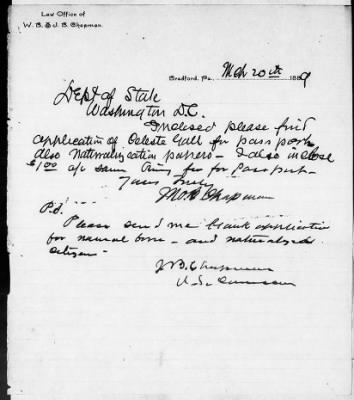 Law Office of
W. B. & J. B. Chapman.
Bradford, Pa., Mch 20th 1889
Dept of State
Washington D.C.
Inclosed please find
application of Celeste Gall for passport
also Naturalization papers - I also inclose
$1.00 a/c same fee for Passport -
Yours truly
B Chapman
P.S.
Please send me blank application
for natural born - and naturalized
citizen -
J B Chapman